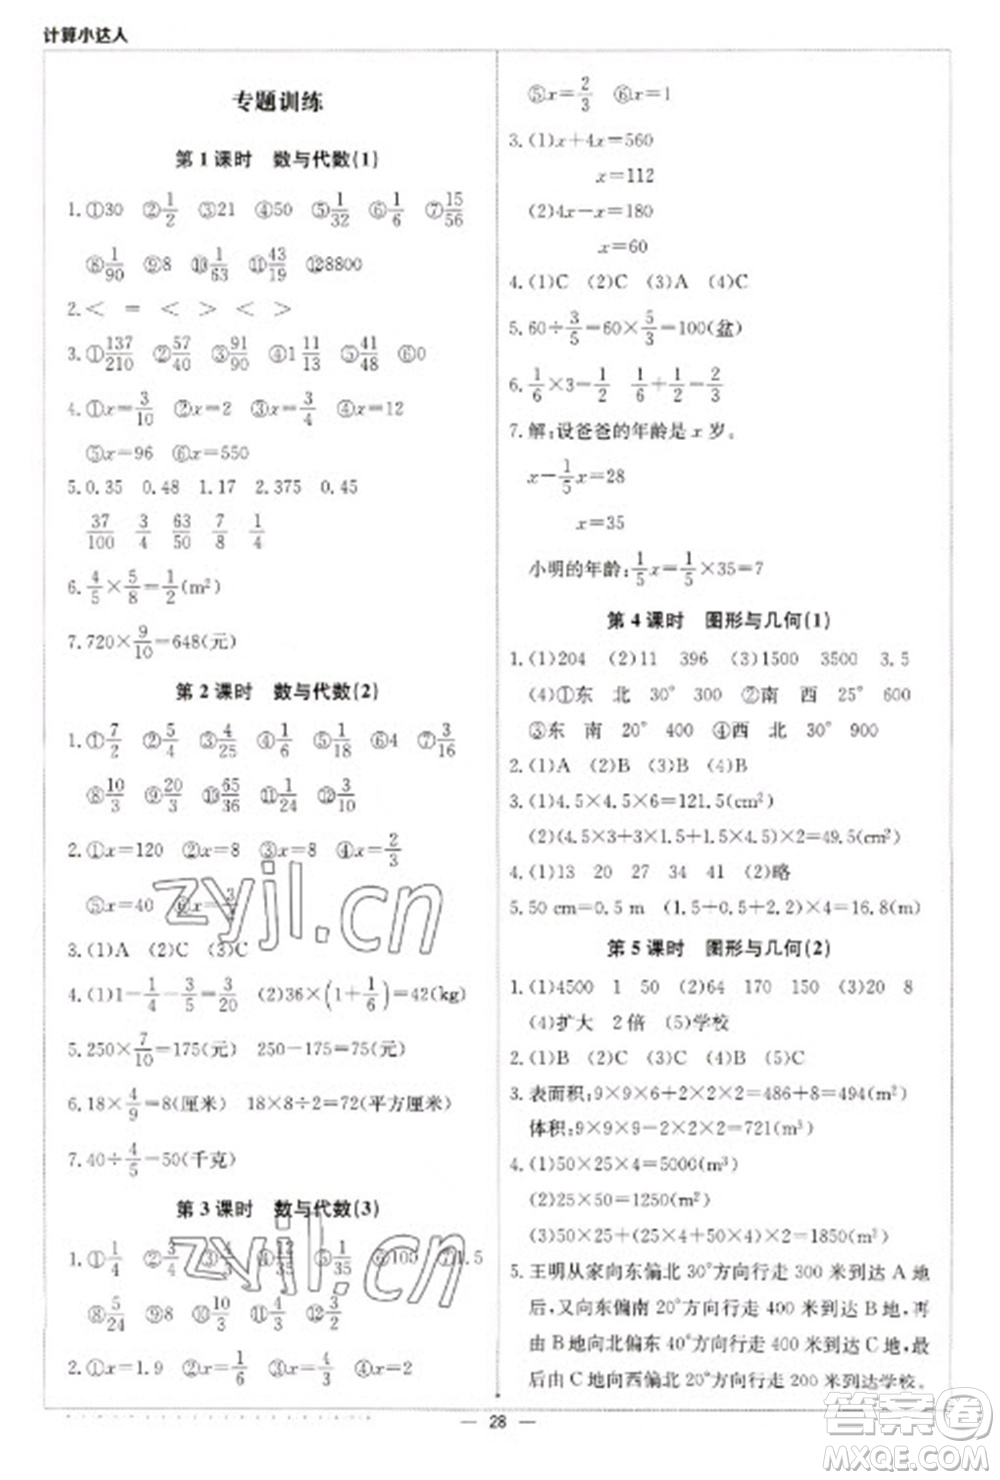 计算小达人
专题训练
第1课时 数与代数(1)
1.①30 ②1/2 ③21 ④50 ⑤1/32 ⑥1/6 ⑦15/56
⑧1/90 ⑨8 ⑩1/63 ⑪43/19 ⑫8800
2.< = < > < >
3.①137/210 ②57/40 ③91/90 ④1 11/13 ⑤41/48 ⑥0
4.①x=3/10 ②x=2 ③x=3/4 ④x=12
⑤x=96 ⑥x=550
5.0.35 0.48 1.17 2.375 0.45
37/100 3/4 63/50 7/8 1/4
6.4/5×5/8=1/2(m²)
7.720×9/10=648(元)
第2课时 数与代数(2)
1.①7/2 ②5/4 ③4/25 ④1/6 ⑤1/18 ⑥4 ⑦3/16
⑧10/3 ⑨20/3 ⑩65/36 ⑪1/24 ⑫3/10
2.①x=120 ②x=8 ③x=8 ④x=2/3
⑤x=40 ⑥x=
3.(1)A (2)C (3)C
4.(1)1-1/4-3/5=3/20 (2)36×(1+1/6)=42(kg)
5.250×7/10=175(元) 250-175=75(元)
6.18×4/9=8(厘米) 18×8÷2=72(平方厘米)
7.40÷4/5=50(千克)
第3课时 数与代数(3)
1.①1/4 ②3/4 ③ ④12/35 ⑤1/35 ⑥105 ⑦1.5
⑧5/24 ⑨8 ⑩10/3 ⑪3/10
2.①x=1.9 ②x=1/6 ③x=4/3 ④x=2
⑤x=2/3 ⑥x=1
3.(1)x+4x=560
x=112
(2)4x-x=180
x=60
4.(1)C (2)C (3)A (4)C
5.60÷3/5=60×5/3=100(盆)
6.1/6×3=1/2 1/6+1/2=2/3
7.解:设爸爸的年龄是x岁。
x-1/5x=28
x=35
小明的年龄:1/5x=1/5×35=7
第4课时 图形与几何(1)
1.(1)204 (2)11 396 (3)1500 3500 3.5
(4)①东 北 30° 300 ②南 西 25° 600
③东 南 20° 400 ④西 北 30° 900
2.(1)A (2)B (3)A (4)B
3.(1)4.5×4.5×6=121.5(cm²)
(2)(4.5×3+3×1.5+1.5×4.5)×2=49.5(cm²)
4.(1)13 20 27 34 41 (2)略
5.50 cm=0.5 m (1.5+0.5+2.2)×4=16.8(m)
第5课时 图形与几何(2)
1.(1)4500 1 50 (2)64 170 150 (3)20 8
(4)扩大 2倍 (5)学校
2.(1)B (2)C (3)B (4)B (5)C
3.表面积:9×9×6+2×2×2=486+8=494(m²)
体积:9×9×9-2×2×2=721(m³)
4.(1)50×25×4=5000(m³)
(2)25×50=1250(m²)
(3)50×25+(25×4+50×4)×2=1850(m²)
5.王明从家向东偏北30°方向行走300米到达A地
后,又向东偏南20°方向行走400米到达B地,再
由B地向北偏东40°方向行走400米到达C地,最
后由C地向西偏北20°方向行走200米到达学校。
28
zyjl.cn
zyjl.cn
答案圈
MXQE.COM